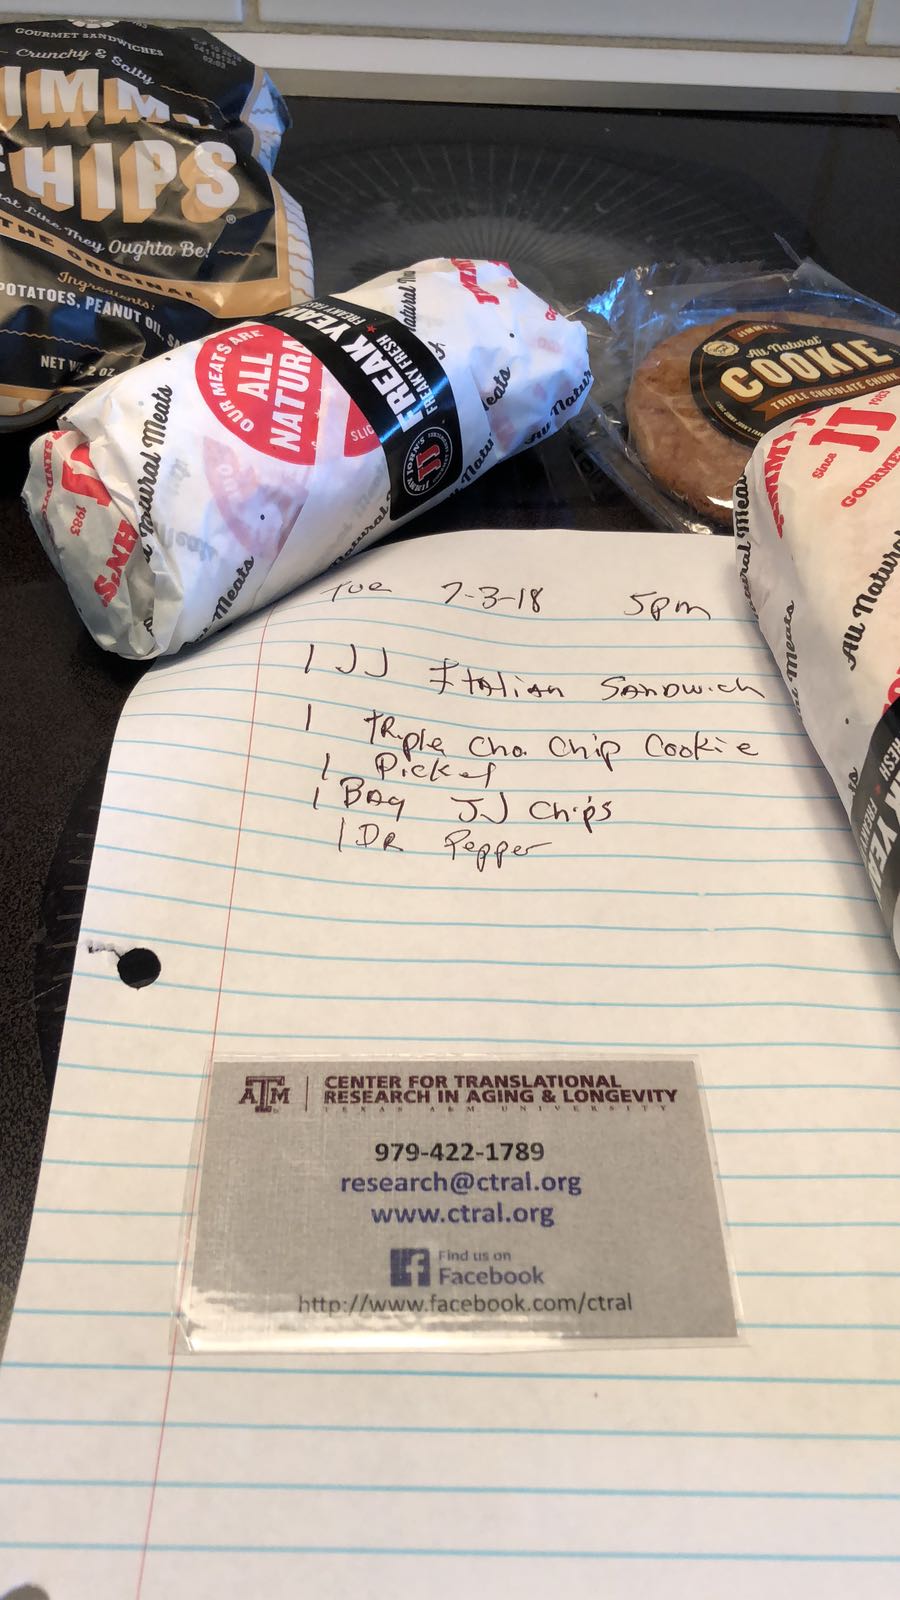 GOURMET SANDWICHES
Crunchy & Salty
CHIPS
They Oughta Be!
THE ORIGINAL
Ingredients:
POTATOES, PEANUT OIL,
NET WT. 2 OZ.
OUR MEATS ARE
ALL
NATURAL
FREAK YEAH
FREAKY FRESH
JIMMY JOHN'S
All Natural Meats
1983
All Natural
COOKIE
TRIPLE CHOCOLATE CHUNK
JJ
Since
1983
GOURMET
All Natural
Tue 7-3-18 5pm
1 JJ Italian Sandwich
1 Triple Cho. Chip Cookie
1 Pickel
1 Bag JJ Chips
1 DR Pepper
ATM CENTER FOR TRANSLATIONAL
RESEARCH IN AGING & LONGEVITY
TEXAS A&M UNIVERSITY
979-422-1789
research@ctral.org
www.ctral.org
Find us on
Facebook
http://www.facebook.com/ctral